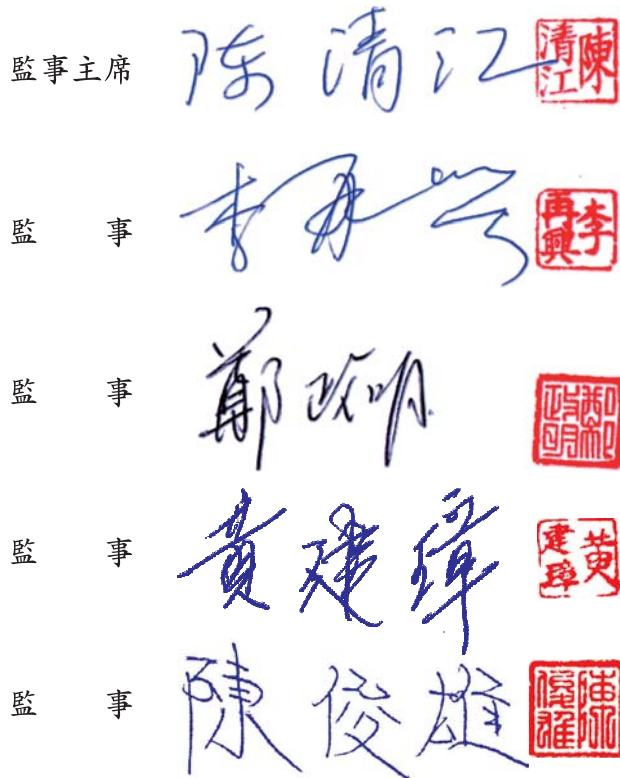 監事主席 陳清江 陳清江
監 事 李再興 李再興
監 事 鄭政明 鄭政明
監 事 黃建璋 黃建璋
監 事 陳俊雄 陳俊雄